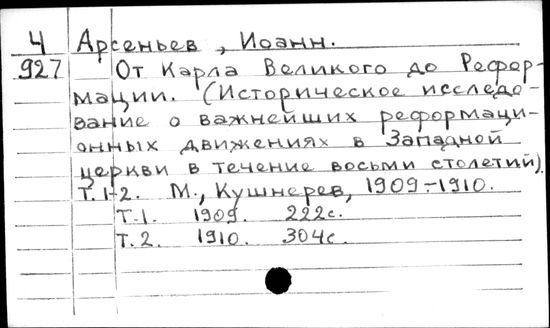 4 Арсеньев, Иоанн.
927 От Карла Великого до Рефор-
мации. (Историческое исследо-
вание о важнейших реформаци-
онных движениях в Западной
церкви в течение восьми столетий).
Т.1-2. М., Кушнерев, 1909-1910.
Т.1. 1909. 222с.
Т.2. 1910. 304с.